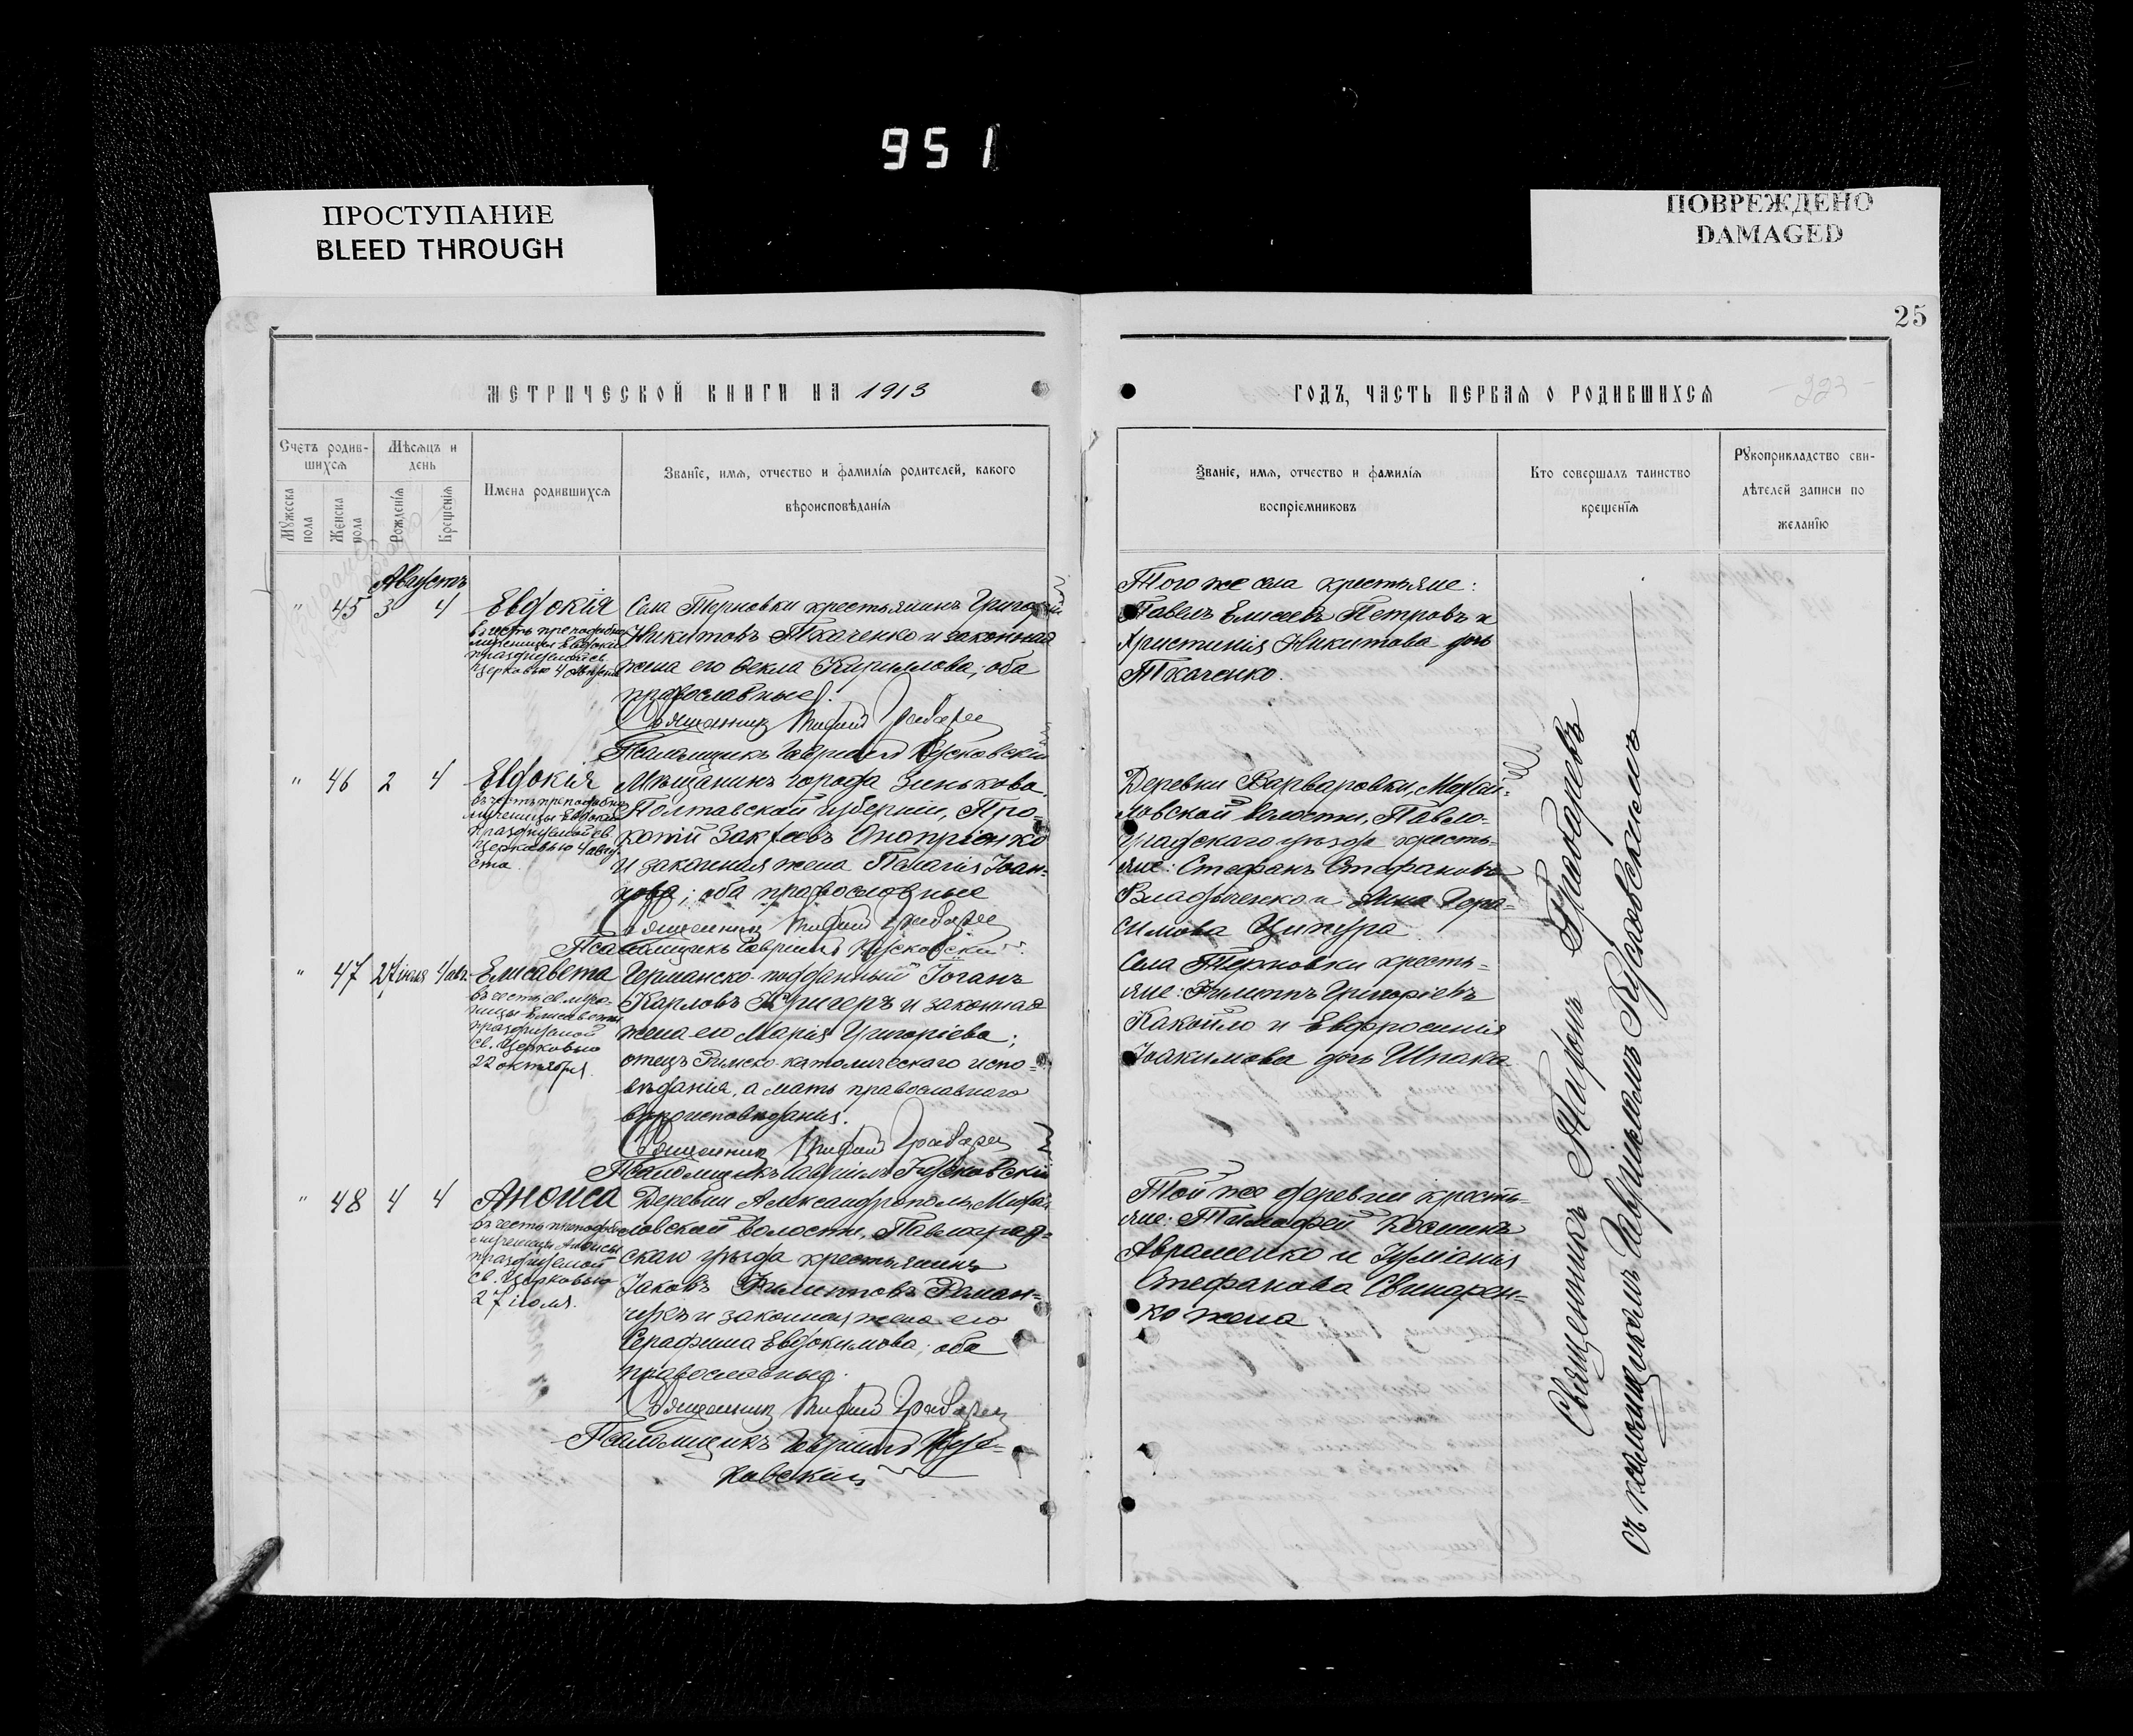 951
ПРОСТУПАНИЕ
BLEED THROUGH
ПОВРЕЖДЕНО
DAMAGED
25
МЕТРИЧЕСКОЙ КНИГИ НА 1913
ГОДЪ, ЧАСТЬ ПЕРВАЯ О РОДИВШИХСЯ
223
Счетъ родив-
шихся
Мужеска
пола
Женска
пола
Мѣсяцъ и
день
Рожденія
Крещенія
Имена родившихся
Званіе, имя, отчество и фамилія родителей, какого
вѣроисповѣданія
Званіе, имя, отчество и фамилія
воспріемниковъ
Кто совершалъ таинство
крещенія
Рукоприкладство сви-
дѣтелей записи по
желанію
Августъ
" 45 3 4
Евдокія
въ честь преподобно
мученицы Евдокіи
празднуемой св.
Церковью 4 Августа
Села Терновки крестьянинъ Григорій
Никитовъ Ткаченко и законная
жена его Ѳекла Кириллова, оба
православные.
Священник Тифон Грабарев
Псаломщикъ Гавриилъ Кусковскій
Того же села крестьяне:
Павелъ Елисеевъ Петровъ и
Христинія Никитова дочь
Ткаченко.
" 46 2 4
Евдокія
въ честь преподобно
мученицы Евдокіи
празднуемой св.
Церковью 4 авгу-
ста.
Мѣщанинъ города Зинькова
Полтавской губерніи, Про-
копій Оноприенко
и законная жена Палагія Іоан-
нова; оба православные
Священник Тифон Грабарев
Псаломщикъ Гавриилъ Кусковскій
Деревни Варваровки, Михай-
ловской волости, Павло-
градскаго уѣзда кресть-
яне: Стефанъ Стефановъ
Владыченко и Анна Гера-
симова Цинура
" 47 27 іюля 4 авг.
Елисавета
въ честь св. муче-
ницы Елисаветы
празднуемой
св. Церковью
22 октября.
Германско-подданный Іоганъ
Карловъ Кригеръ и законная
жена его Марія Григоріева;
отецъ Римско-католическаго испо-
вѣданія, а мать православнаго
вѣроисповѣданія.
Священник Тифон Грабарев
Псаломщикъ Гавриилъ Кусковскій
Села Терновки кресть-
яне: Филиппъ Григоріевъ
Какойло и Евфросинія
Іоакимова дочь Шпака.
" 48 4 4
Анѳиса
въ честь преподобно
мученицы Анѳисы
празднуемой
св. Церковью
27 іюля.
Деревни Александрополь, Михай-
ловской волости, Павлоград-
скаго уѣзда крестьянинъ
Іаковъ Филипповъ Роман-
чукъ и законная жена его
Серафима Евдокимова, оба
православные.
Священник Тифон Грабарев
Псаломщикъ Гавриилъ Кус-
ковскій
Той же деревни кресть-
яне: Тимофей Косминъ
Авраменко и Іуліанія
Стефанова Свинарен-
ко жена
Священникъ Тифонъ Грабаревъ
съ псаломщикомъ Гавріиломъ Кусковскимъ